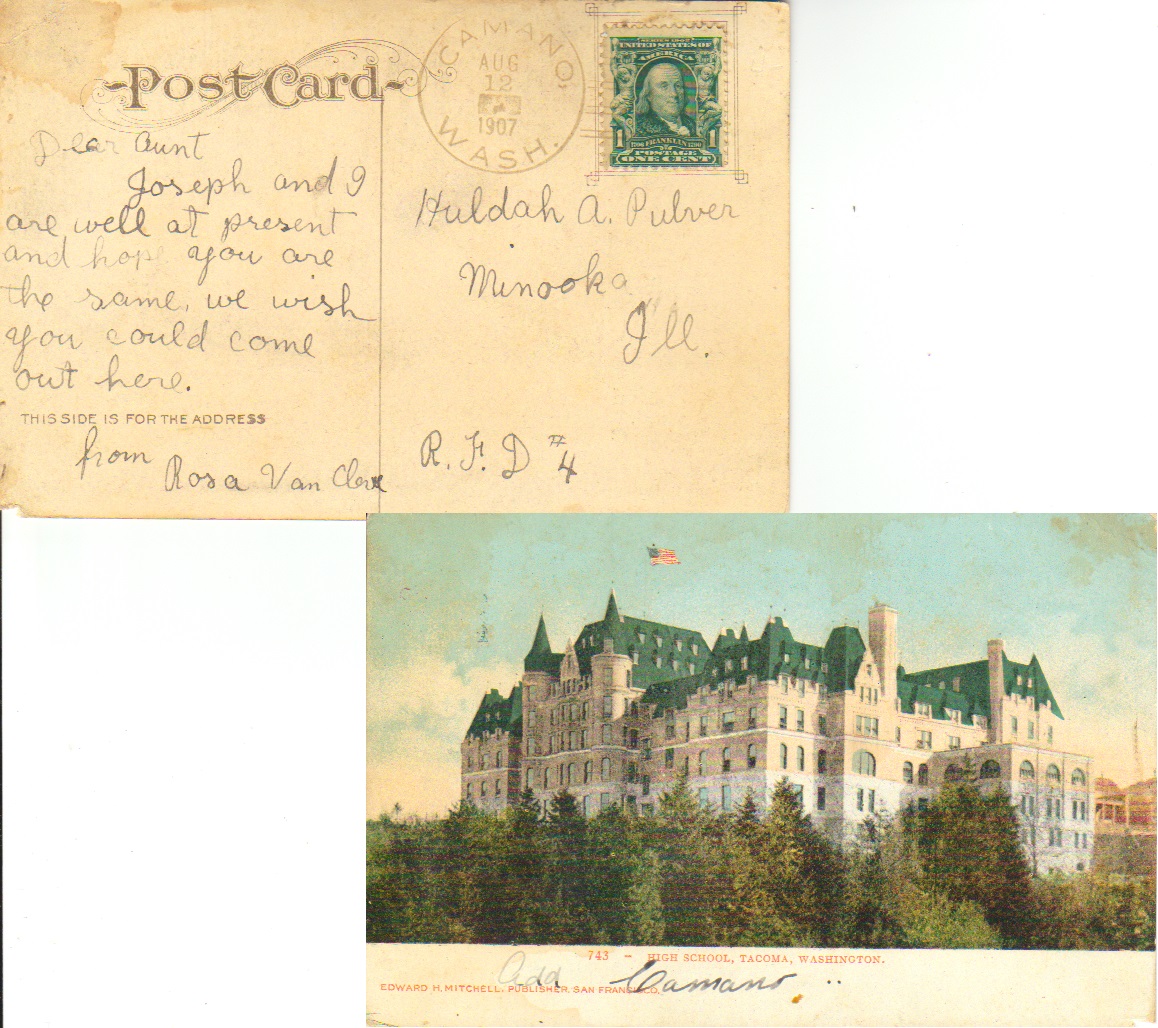 Post Card
CAMANO,
AUG
12
1907
WASH.
SERIES 1902
UNITED STATES OF
AMERICA
1 1
1706 FRANKLIN 1790
POSTAGE
ONE CENT
Dear Aunt
Joseph and I
are well at present
and hope you are
the same, we wish
you could come
out here.
THIS SIDE IS FOR THE ADDRESS
from
Rosa Van Cleve
Huldah A. Pulver
Minooka
Ill.
R. F. D #4
743 - HIGH SCHOOL, TACOMA, WASHINGTON.
Add Camano
EDWARD H. MITCHELL, PUBLISHER, SAN FRANCISCO.